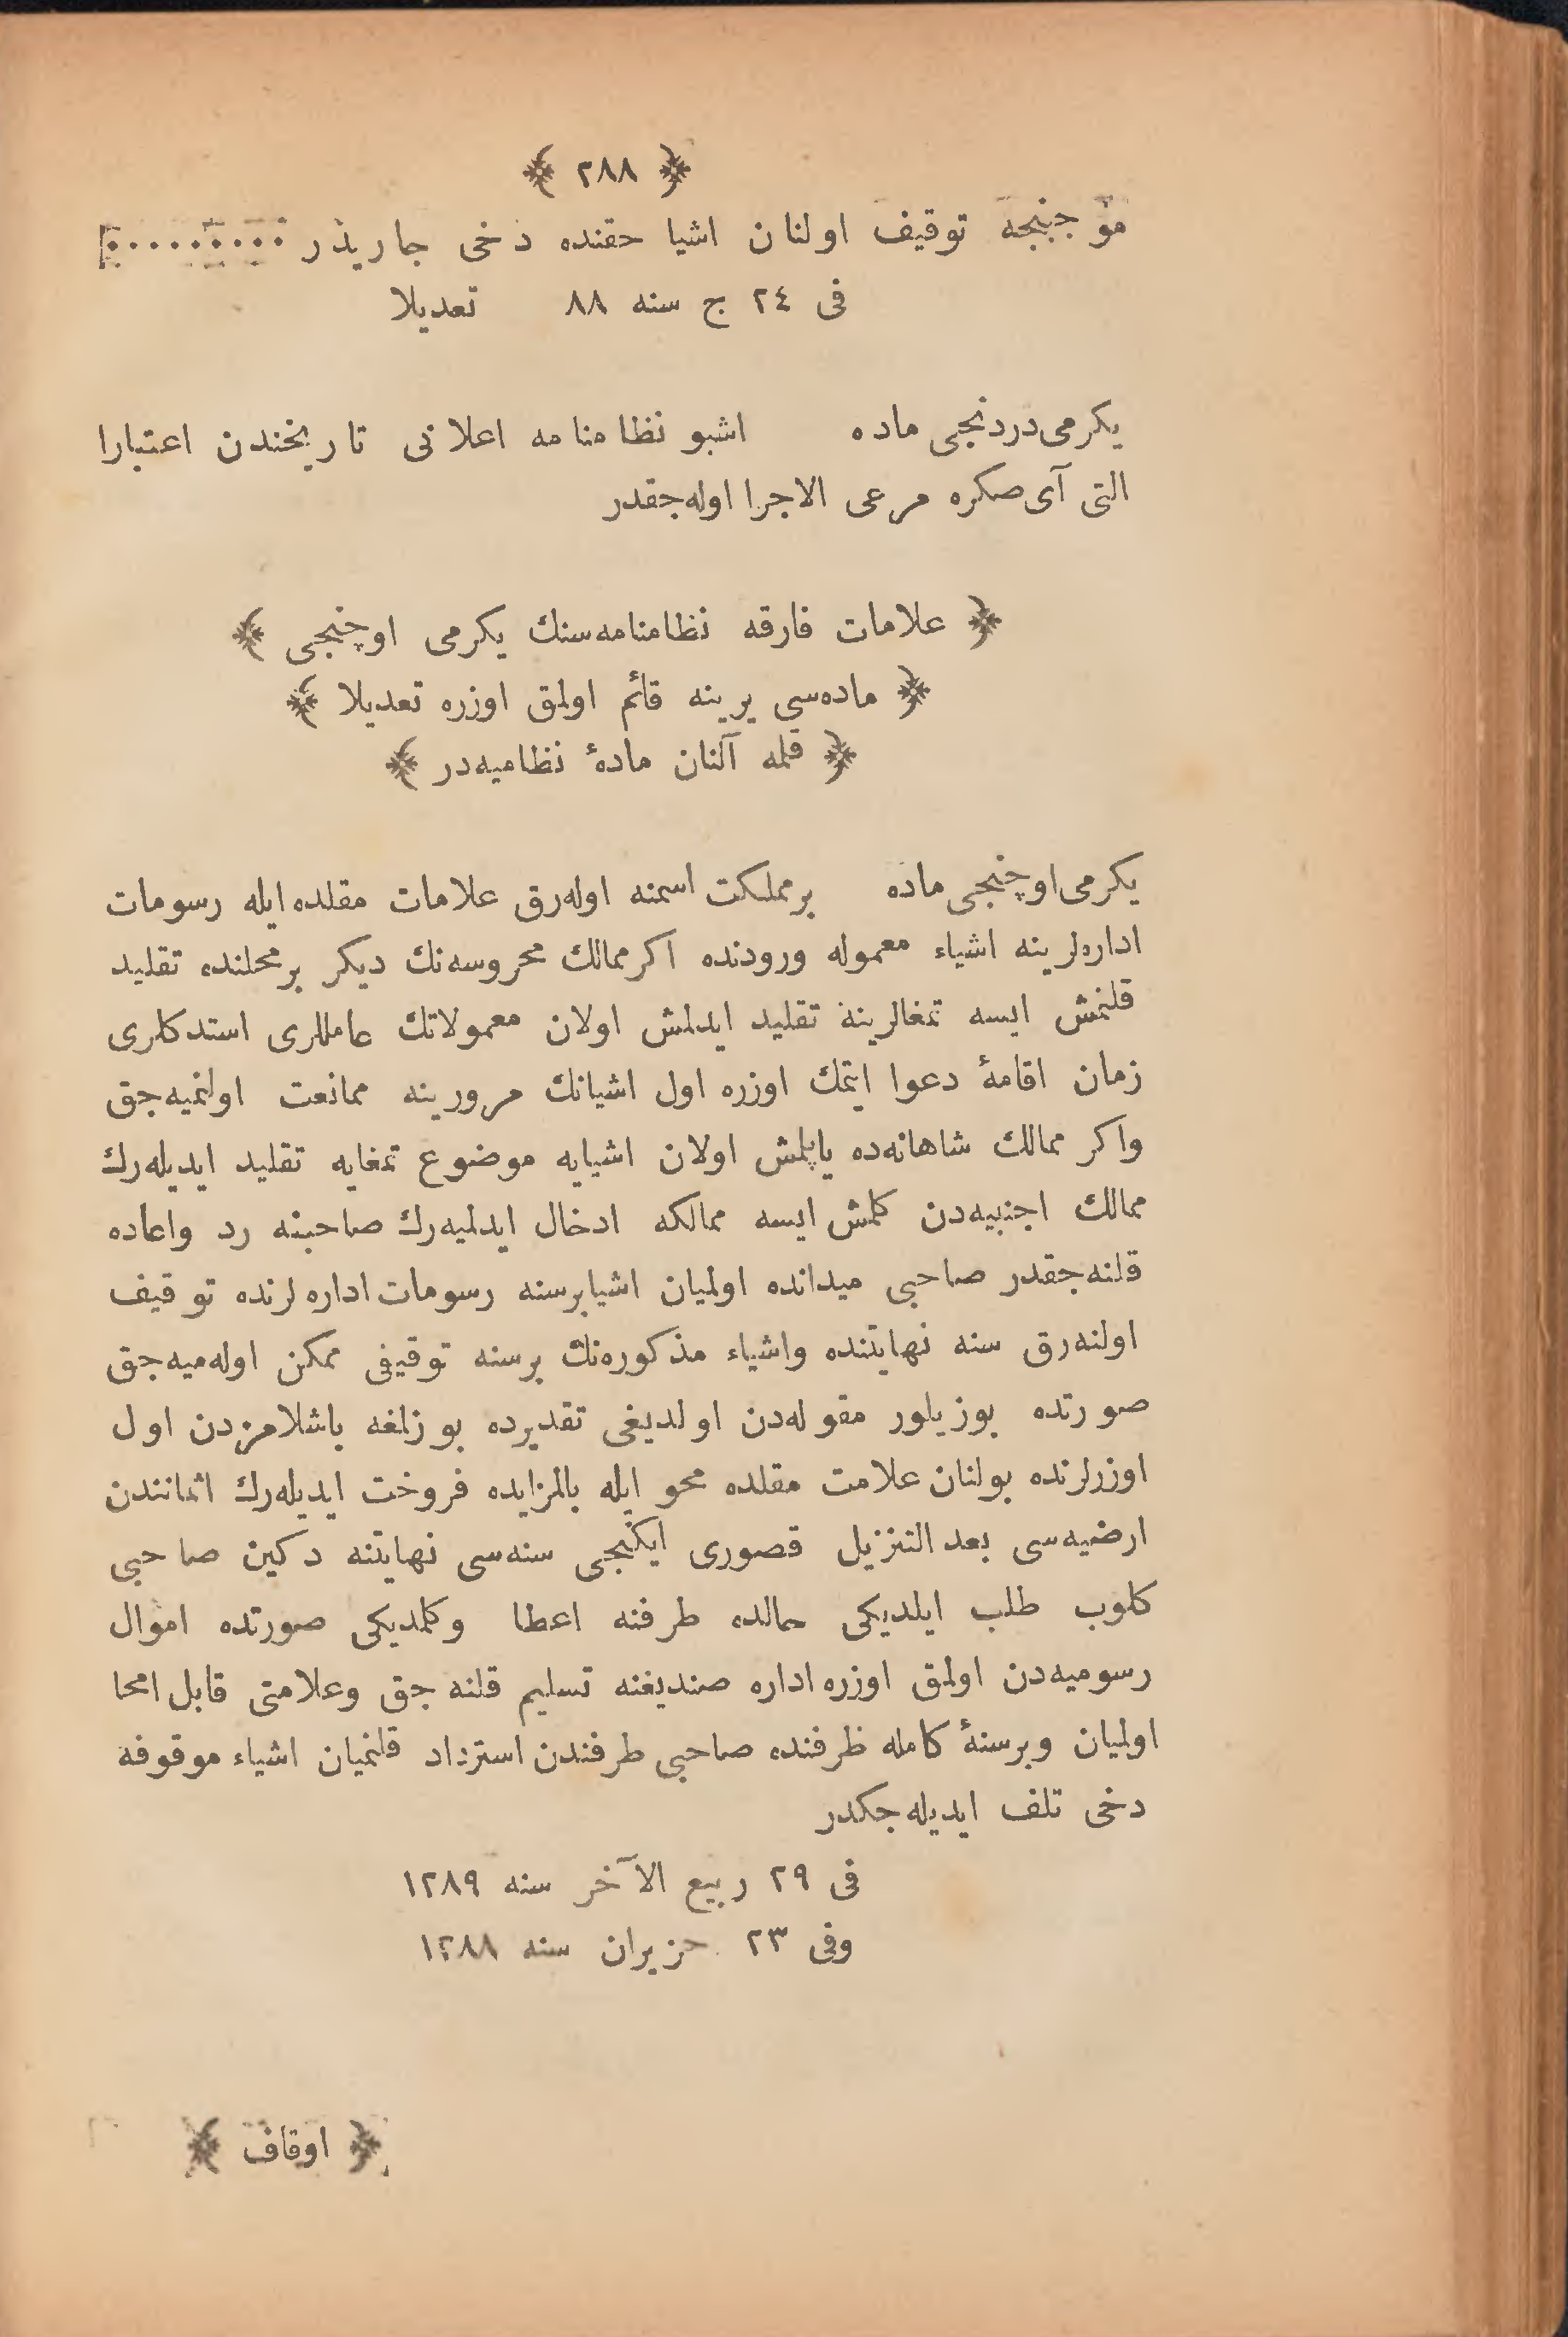 ﴿ ٢٨٨ ﴾
موجبنجه توقیف اولنان اشیا حقنده دخی جاریدر ٠٠٠٠٠٠٠٠٠
فی ٢٤ ج سنه ٨٨ تعدیلا
یکرمی‌دردنجی ماده اشبو نظامنامه اعلانی تاریخندن اعتبارا
التی آی صکره مرعی الاجرا اوله‌جقدر
﴿ علامات فارقه نظامنامه‌سنك یکرمی اوچنجی ﴾
﴿ ماده‌سی یرینه قائم اولمق اوزره تعدیلا ﴾
﴿ قلمه آلنان مادۀ نظامیه‌در ﴾
یکرمی‌اوچنجی ماده برمملکت اسمنه اوله‌رق علامات مقلده ایله رسومات
اداره‌لرینه اشیاء معموله ورودنده اکر ممالك محروسه‌نك دیکر برمحلنده تقلید
قلنمش ایسه تمغالرینه تقلید ایدلمش اولان معمولاتك عاملاری استدکلری
زمان اقامۀ دعوا ایتمك اوزره اول اشیانك مرورینه ممانعت اولنمیه‌جق
واکر ممالك شاهانه‌ده یاپلمش اولان اشیایه موضوع تمغایه تقلید ایدیله‌رك
ممالك اجنبیه‌دن کلمش ایسه ممالکه ادخال ایدلمیه‌رك صاحبنه رد واعاده
قلنه‌جقدر صاحبی میدانده اولمیان اشیا برسنه رسومات اداره‌لرنده توقیف
اولنه‌رق سنه نهایتنده واشیاء مذکوره‌نك برسنه توقیفی ممکن اوله‌میه‌جق
صورتده بوزیلور مقوله‌دن اولدیغی تقدیرده بوزلغه باشلامزدن اول
اوزرلرنده بولنان علامت مقلده محو ایله بالمزایده فروخت ایدیله‌رك اثماندن
ارضیه‌سی بعد التنزیل قصوری ایکنجی سنه‌سی نهایتنه دکین صاحبی
کلوب طلب ایلدیکی حالده طرفنه اعطا وکلمدیکی صورتده اموال
رسومیه‌دن اولمق اوزره اداره صندیغنه تسلیم قلنه‌جق وعلامتی قابل امحا
اولمیان وبرسنۀ کامله ظرفنده صاحبی طرفندن استرداد قلنمیان اشیاء موقوفه
دخی تلف ایدیله‌جکدر
فی ٢٩ ربیع الآخر سنه ١٢٨٩
وفی ٢٣ حزیران سنه ١٢٨٨
﴿ اوقاف ﴾